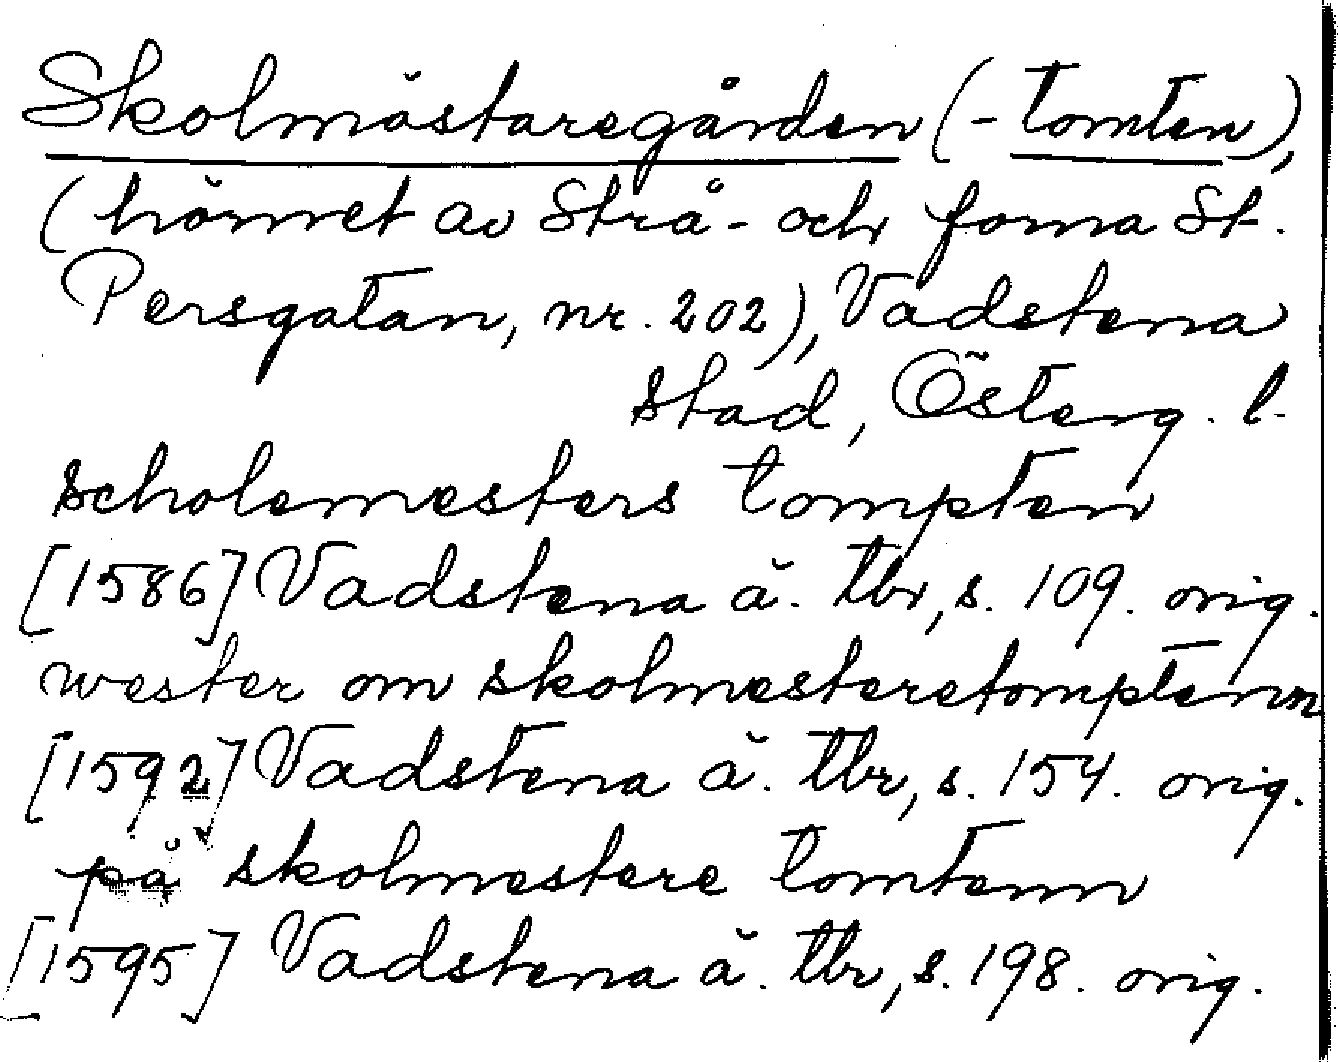 Skolmästaregården (-tomten),
(hörnet av Strå- och forna St.
Persgatan, nr. 202), Vadstena
stad, Österg. l.
scholemesters tompten
[1586] Vadstena ä. tbr, s. 109. orig.
wester om skolmesteretomptenn
[1592] Vadstena ä. tbr, s. 154. orig.
på skolmestere tomtenn
[1595] Vadstena ä. tbr, s. 198. orig.